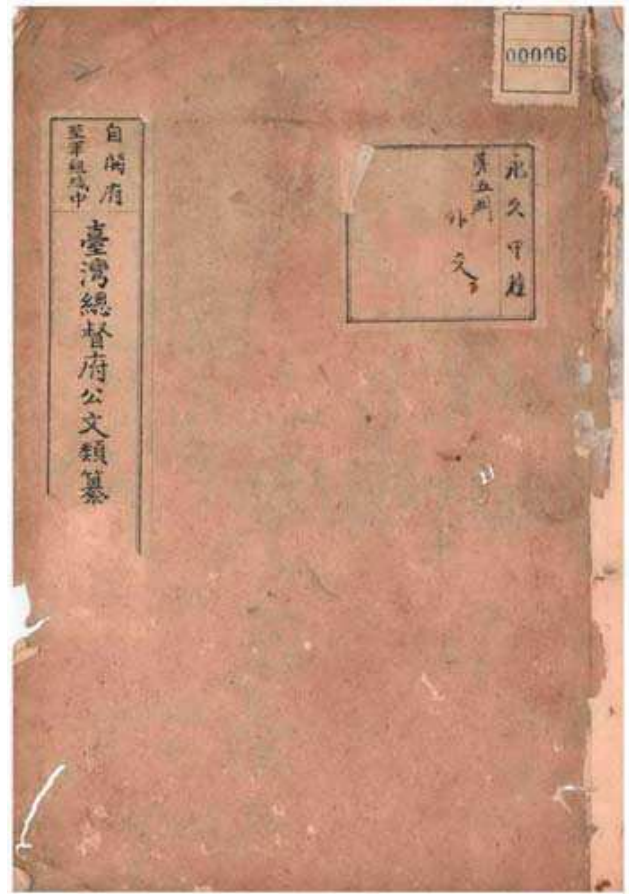 00006
永久甲種
第五門
外交
自開府
至軍組織中
臺灣總督府公文類纂